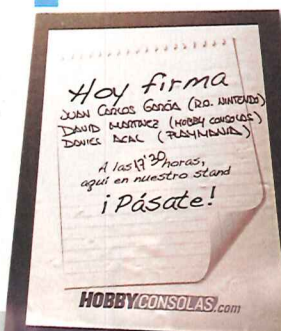 Hoy firma
JUAN CARLOS GARCÍA (R.O. NINTENDO)
DAVID MARTÍNEZ (HOBBY CONSOLAS)
DANIEL ACAL (PLAYMANÍA)
A las 17'30 horas,
aquí en nuestro stand
¡Pásate!
HOBBYCONSOLAS.com